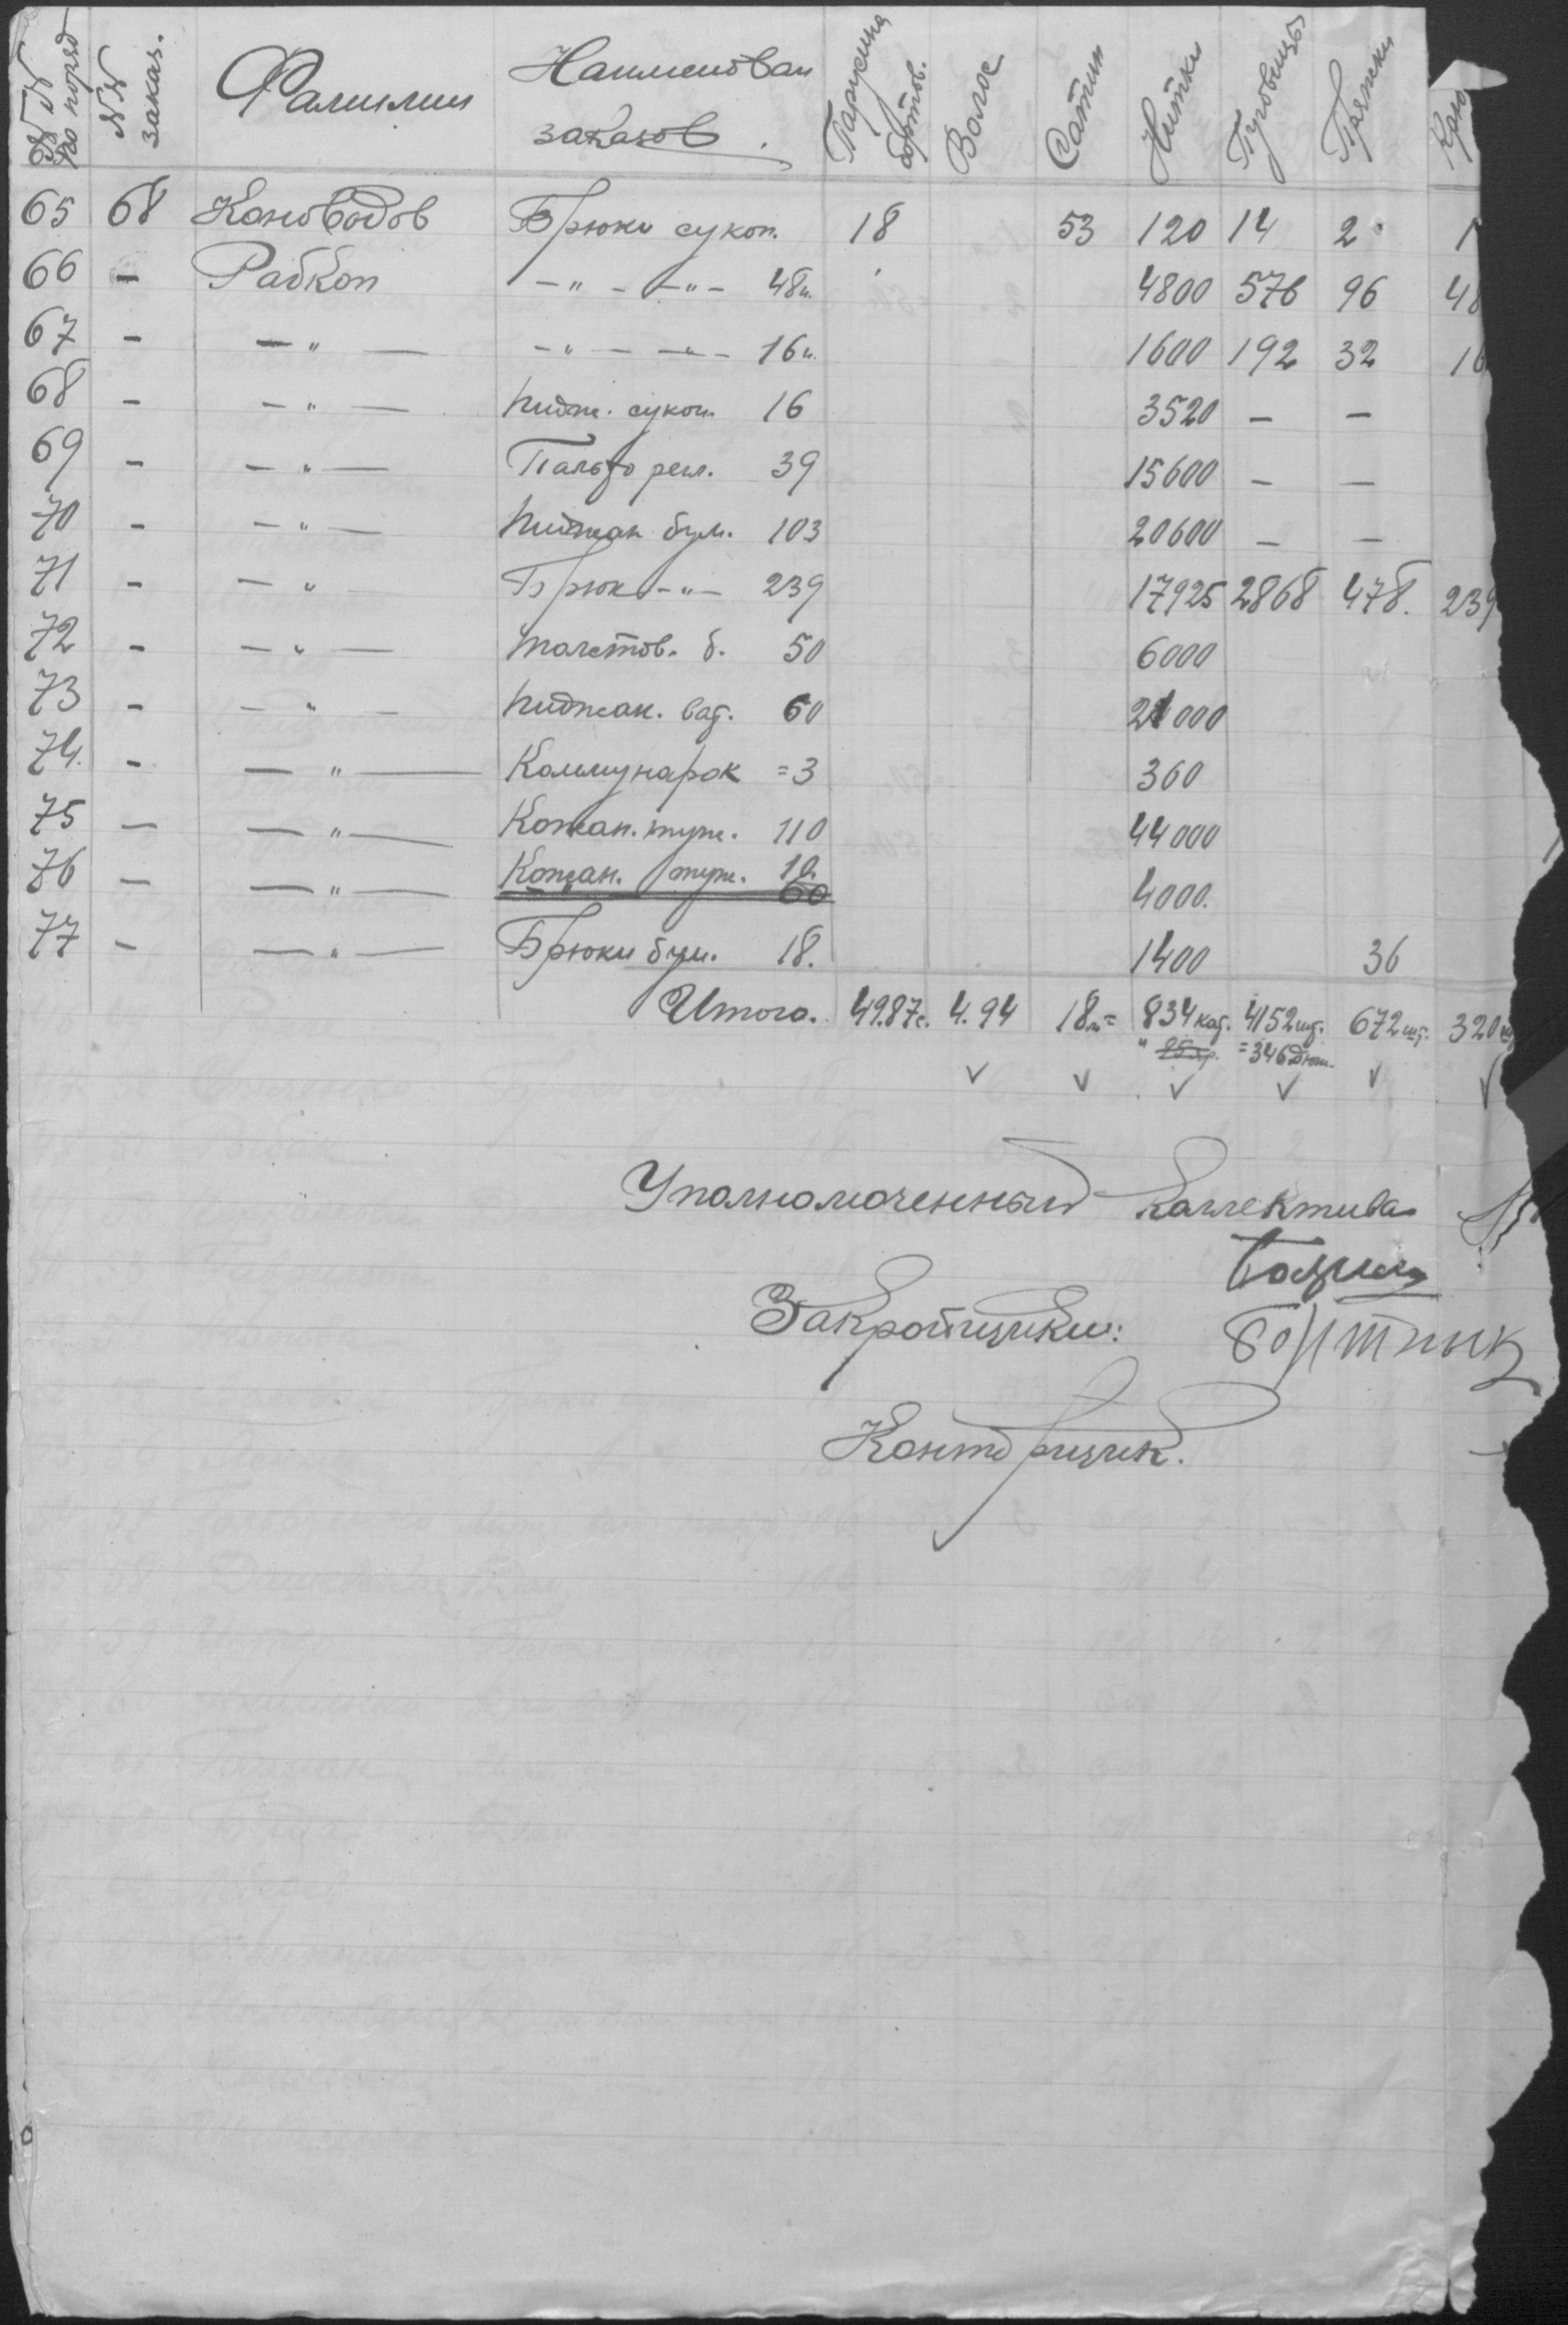 №№ по поряд №№ заказ. Фамилии Наименован заказов. Парусина бортов. Волос Сатин Нитки Пуговицы Пряжки Крю
65 68 Коноводов Брюки сукон. 18 53 120 14 2 1
66 – Рабкоп –"– –"– 48 ш. 4800 576 96 48
67 – –"– –"– –"– 16 ш. 1600 192 32 16
68 – –"– Пидж. сукон. 16 3520 – –
69 – –"– Пальто 39 15600 – –
70 – –"– Пиджак бум. 103 20600 – –
71 – –"– Брюк –"– 239 17925 2868 478. 239
72 – –"– Толстов. б. 50 6000
73 – –"– Пиджак. ват. 60 21000
74. – –"– Коммунарок = 3 360
75 – –"– Кожан. туж. 110 44000
76 – –"– Кожан. туж. 10. 60 4000.
77 – –"– Брюки бум. 18. 1400 36
Итого. 49.87с. 4.94 18м= 834 кат. 4152 шт. 672 шт. 320 ш
" = 346 дюж.
Уполномоченный коллектива
Закройщики:
Бортник
Конторщик.